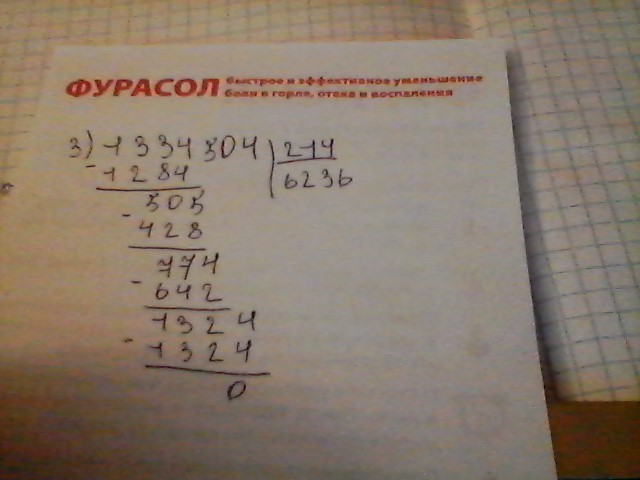 ФУРАСОЛ быстрое и эффективное уменьшение
боли в горле, отека и воспаления
3) 1334504 | 214
- 1284 | 6236
505
- 428
774
- 642
1324
- 1324
0